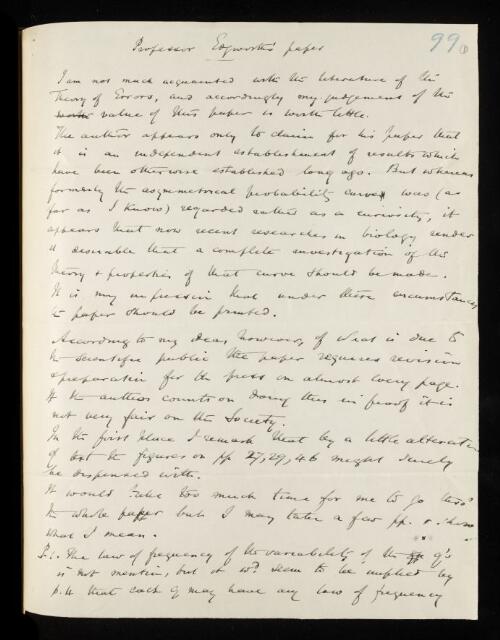 Professor Edgworth's paper
99
I am not much acquainted with the literature of the
Theory of Errors, and accordingly my judgement of the
value of this paper is worth little.
The author appears only to claim for his paper that
it is an independent establishment of results which
have been otherwise established long ago. But whereas
formerly the asymmetrical probability curve was (as
far as I know) regarded rather as a curiosity, it
appears that now recent researches in biology render
it desirable that a complete investigation of the
theory & properties of that curve should be made.
It is my impression that under these circumstances
the paper should be printed.
According to my ideas however, of what is due to
the scientific public the paper requires revision
& preparation for the press on almost every page.
If the author counts on doing this in proof it is
not very fair on the Society.
In the first place I remark that by a little alteration
of text the figures on pp 27, 29, 46 might surely
be dispensed with.
It would take too much time for me to go thro'
the whole paper but I may take a few pp. & show
what I mean.
P. 1. The law of frequency of the variability of the q's
is not mention, but it wd. seem to be implied by
p. 4 that each q may have any law of frequency